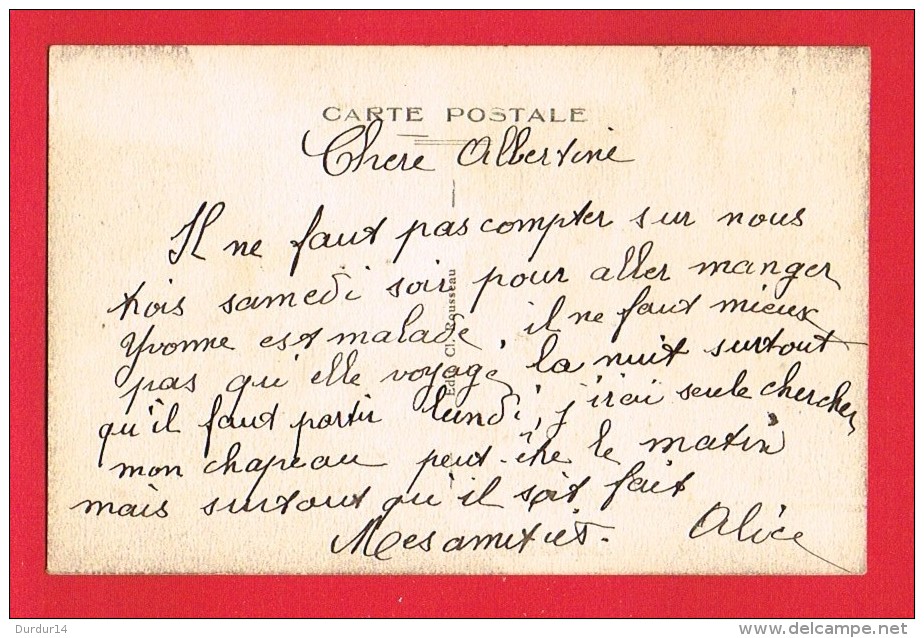 CARTE POSTALE
Chere Albertine
Il ne faut pas compter sur nous
trois samedi soir pour aller manger
Yvonne est malade, il ne faut mieux
pas qu'elle voyage la nuit surtout
qu'il faut partir lundi, j'irai seule chercher
mon chapeau peut-être le matin
mais surtout qu'il soit fait
Mes amitiés. Alice
Edit. Cl. Rousseau
Durdur14
delcampe.net